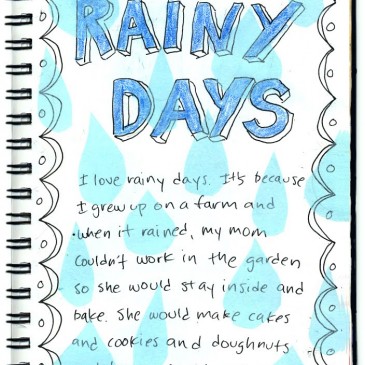 RAINY
DAYS
I love rainy days. It's because
I grew up on a farm and
when it rained, my mom
couldn't work in the garden
so she would stay inside and
bake. She would make cakes
and cookies and doughnuts